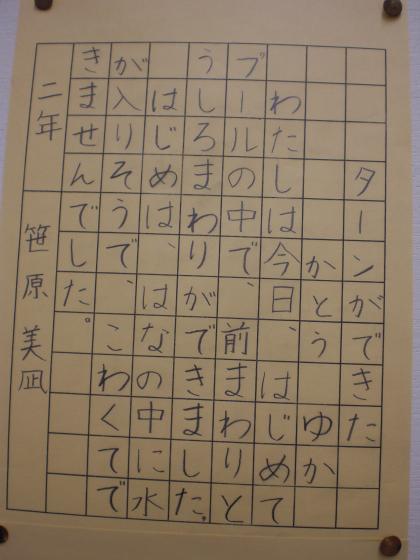 ターンができた
かとう ゆか
わたしは今日、はじめて
プールの中で、前まわりと
うしろまわりができました。
はじめは、はなの中に水
が入りそうで、こわくてで
きませんでした。
二年 笹原美凪